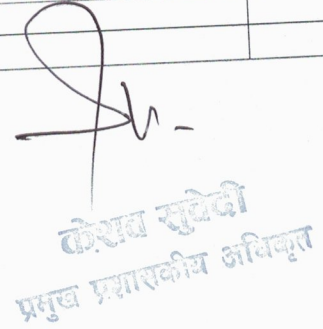 केशव सुवेदी
प्रमुख प्रशासकीय अधिकृत